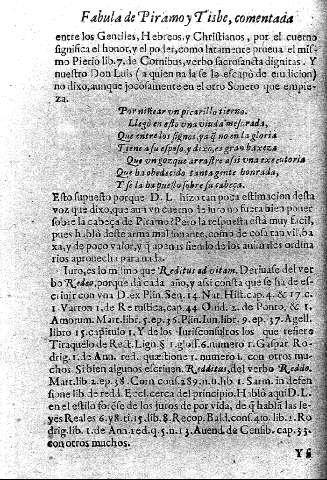 Fabula de Piramo y Tisbe, comentada
entre los Gentiles, Hebreos, y Christianos, por el cuerno
significa el honor, y el poder, como latamente prueua el mismo
Pierio lib. 7. de Cornibus, verbo sacrosancta dignitas. Y
nuestro Don Luis (a quien nada se le escapó de erudicion)
no dixo, aunque jocosamente en otro Soneto que empieza.
Por niñear vn picarillo tierno.
Llegó en esto vna viuda mesurada,
Que entre los signos, ya q̃ no en la gloria
Tiene a su esposo, y dixo, es gran baxeza
Que vn gozque arrastre assi vna executoria
Que ha obedecido tanta gente honrada,
Y se la ha puesto sobre su cabeça.
Esto supuesto porque D. L. hizo tan poca estimacion desta
voz que dixo, que aun vn cuerno de juro no fuera bien poner
sobre la cabeça de Piramo? Pero la respuesta està muy facil,
pues habló deste arma mal sonante, como de cosa tan vil, baxa,
y de poco valor, y q̃ apenas siendo de los animales ordinarios
aprouecha para nada.
Iuro, es lo mismo que Redditus ad vitam. Deriuase del verbo
Redeo, porque dà cada año, y assi consta que se ha de
escriuir con vna D. ex Plin. Sen. 14. Nat. Hist. cap. 4. & 17. c.
1. Varron 1. de Re rustica, cap. 44. Ouid. 2. de Ponto, & 1.
Amorum. Mart. lib. 5. ep. 36. Plin. Iun. lib. 9. ep. 37. Agell.
libro 15. capitulo 1. Y de los Iurisconsultos los que refiere
Tiraquelo de Ret. Lign. § 1. glos. 6. numero 1. Gaspar Rodrig.
1. de Ann. red. quæstione 1. numero 1. con otros muchos.
Si bien algunos escriuen. Redditus, del verbo Reddo.
Mart. lib. 2. ep. 38. Corn. cons. 289. n. 9. lib 1. Sarm. in defensione
lib. de redd. Eccl. cerca del principio. Habló aqui D. L.
en el estilo forense de los juros de por vida, de q̃ hablã las leyes
Reales 6. y 8. ti. 15. lib. 8. Recop. Bald. cons. 410. lib. 1. Rodrig.
lib. 1. de Ann. red. q. 5. n. 13. Auend. de Censib. cap. 33.
con otros muchos.
Y si